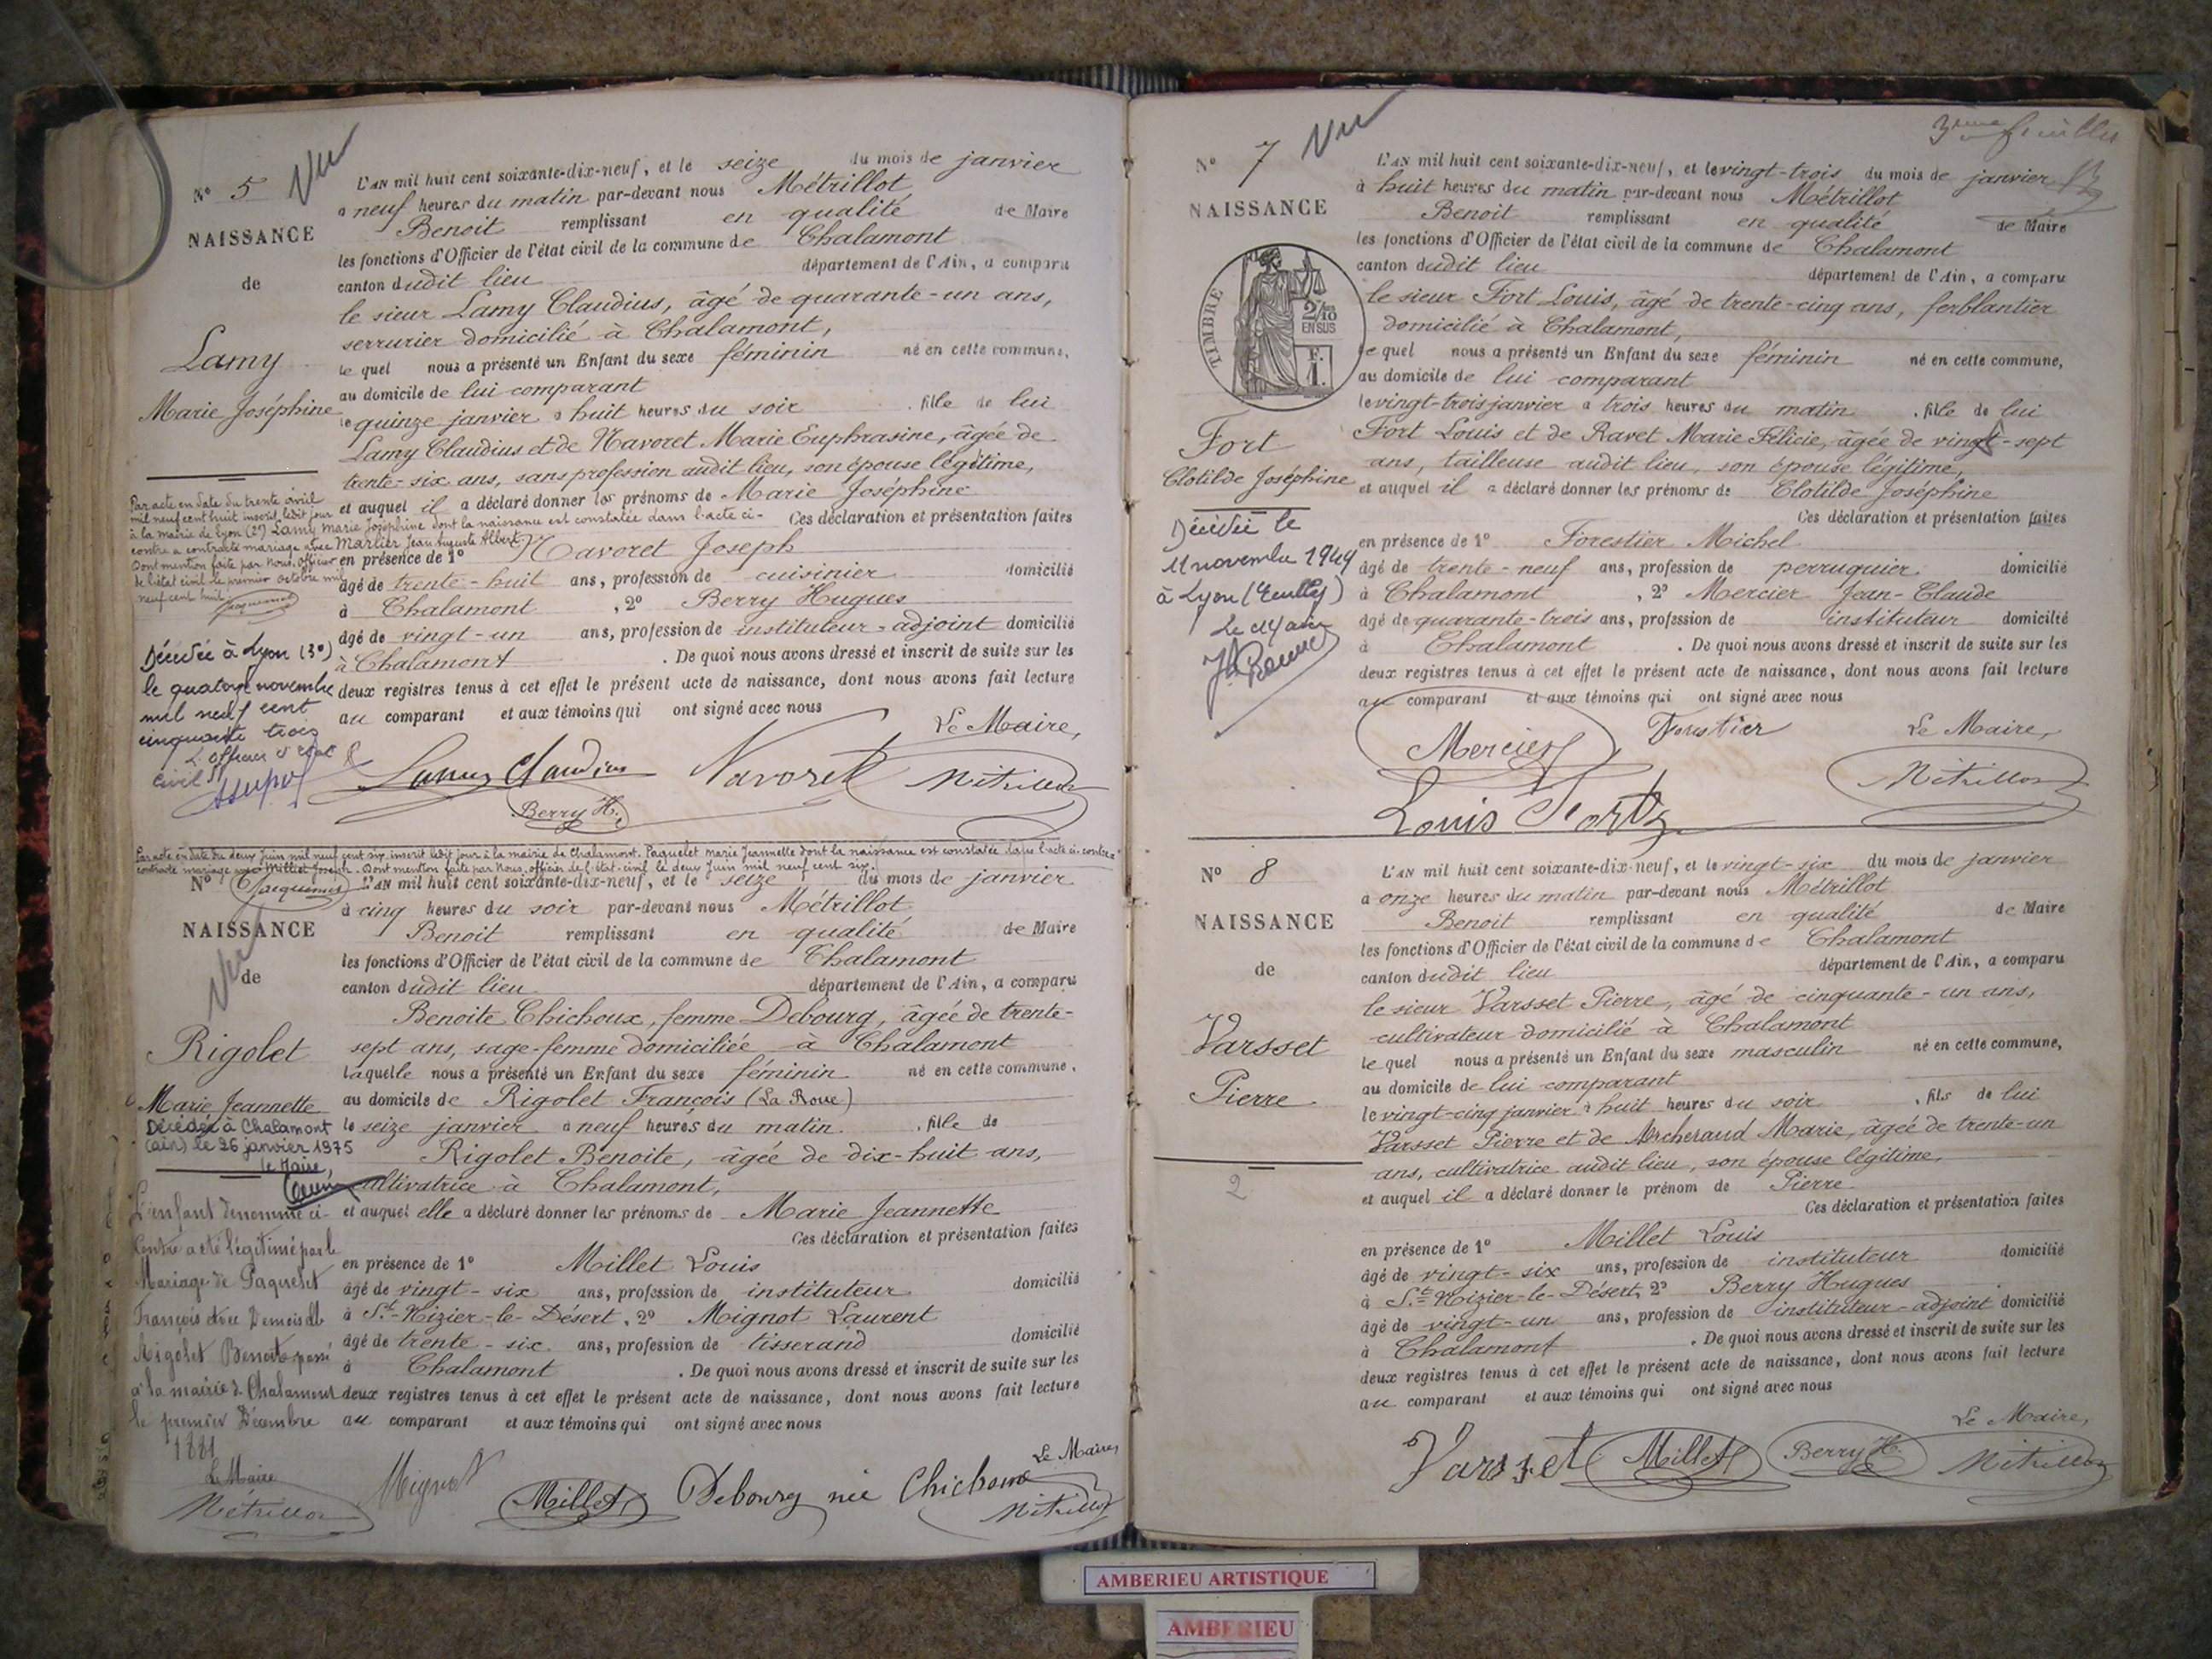 Nº 5 Vu
NAISSANCE
de
Lamy
Marie Joséphine
Par acte en date du trente avril
mil neuf cent huit inscrit ledit jour
à la mairie de Lyon (2e) Lamy Marie Joséphine dont la naissance est constatée dans l'acte ci-
contre a contracté mariage avec Marlier Jean Auguste Albert.
Dont mention faite par Nous, officier
de l'état civil le premier octobre mil
neuf cent huit.
Jacquemet
Décédée à Lyon (3e)
le quatorze novembre
mil neuf cent
cinquante trois
L'officier d'état
civil
L'AN mil huit cent soixante-dix-neuf, et le seize du mois de janvier
à neuf heures du matin par-devant nous Métrillot
Benoit remplissant en qualité de Maire
les fonctions d'Officier de l'état civil de la commune de Chalamont
canton dudit lieu département de l'Ain, a comparu
le sieur Lamy Claudius, âgé de quarante-un ans,
serrurier domicilié à Chalamont,
le quel nous a présenté un Enfant du sexe féminin né en cette commune,
au domicile de lui comparant
le quinze janvier à huit heures du soir, fille de lui
Lamy Claudius et de Navoret Marie Euphrasine, âgée de
trente-six ans, sans profession audit lieu, son épouse légitime,
et auquel il a déclaré donner les prénoms de Marie Joséphine
Ces déclaration et présentation faites
en présence de 1º Navoret Joseph
âgé de trente-huit ans, profession de cuisinier domicilié
à Chalamont, 2º Berry Hugues
âgé de vingt-un ans, profession de instituteur-adjoint domicilié
à Chalamont. De quoi nous avons dressé et inscrit de suite sur les
deux registres tenus à cet effet le présent acte de naissance, dont nous avons fait lecture
au comparant et aux témoins qui ont signé avec nous
Le Maire,
Lamy Claudius Navoret Métrillot
Berry H.
Par acte en date du deux Juin mil neuf cent six inscrit ledit jour à la mairie de Chalamont. Paquelet Marie Jeannette dont la naissance est constatée dans l'acte ci-contre a
contracté mariage avec Milliet Joseph. Dont mention faite par Nous, officier de l'état-civil le deux Juin mil neuf cent six.
Nº Jacquemet
NAISSANCE
Vu
de
Rigolet
Marie Jeannette
Décédée à Chalamont
(ain) le 26 janvier 1975
le Maire,
L'enfant dénommé ci-
contre a été légitimé par le
Mariage de Paquelet
François avec Demoiselle
Rigolet Benoite passé
à la mairie de Chalamont
le premier Décembre
1881
Le Maire
Métrillot
L'AN mil huit cent soixante-dix-neuf, et le seize du mois de janvier
à cinq heures du soir par-devant nous Métrillot
Benoit remplissant en qualité de Maire
les fonctions d'Officier de l'état civil de la commune de Chalamont
canton dudit lieu département de l'Ain, a comparu
Benoite Chichoux, femme Debourg, âgée de trente-
sept ans, sage-femme domiciliée à Chalamont
laquelle nous a présenté un Enfant du sexe féminin né en cette commune,
au domicile de Rigolet François (La Roue)
le seize janvier à neuf heures du matin, fille de
Rigolet Benoite, âgée de dix-huit ans,
cultivatrice à Chalamont,
et auquel elle a déclaré donner les prénoms de Marie Jeannette
Ces déclaration et présentation faites
en présence de 1º Millet Louis
âgé de vingt-six ans, profession de instituteur domicilié
à St-Nizier-le-Désert, 2º Mignot Laurent
âgé de trente-six ans, profession de tisserand domicilié
à Chalamont. De quoi nous avons dressé et inscrit de suite sur les
deux registres tenus à cet effet le présent acte de naissance, dont nous avons fait lecture
au comparant et aux témoins qui ont signé avec nous
Le Maire,
Mignot Millet Debourg née Chichoux Métrillot
3eme feuillet
Nº 7 Vu
NAISSANCE
TIMBRE
2/10
EN SUS
F.
1.
Fort
Clotilde Joséphine
Décédée le
11 novembre 1944
à Lyon (Ecully)
Le Maire
L'AN mil huit cent soixante-dix-neuf, et le vingt-trois du mois de janvier
à huit heures du matin par-devant nous Métrillot
Benoit remplissant en qualité de Maire
les fonctions d'Officier de l'état civil de la commune de Chalamont
canton dudit lieu département de l'Ain, a comparu
le sieur Fort Louis, âgé de trente-cinq ans, ferblantier
domicilié à Chalamont,
le quel nous a présenté un Enfant du sexe féminin né en cette commune,
au domicile de lui comparant
le vingt-trois janvier à trois heures du matin, fille de lui
Fort Louis et de Ravet Marie Félicie, âgée de vingt-sept
ans, tailleuse audit lieu, son épouse légitime,
et auquel il a déclaré donner les prénoms de Clotilde Joséphine
Ces déclaration et présentation faites
en présence de 1º Forestier Michel
âgé de trente-neuf ans, profession de perruquier domicilié
à Chalamont, 2º Mercier Jean-Claude
âgé de quarante-trois ans, profession de instituteur domicilié
à Chalamont. De quoi nous avons dressé et inscrit de suite sur les
deux registres tenus à cet effet le présent acte de naissance, dont nous avons fait lecture
au comparant et aux témoins qui ont signé avec nous
Mercier Forestier Le Maire,
Louis Fort Métrillot
Nº 8
NAISSANCE
de
Varsset
Pierre
2
L'AN mil huit cent soixante-dix-neuf, et le vingt-six du mois de janvier
à onze heures du matin par-devant nous Métrillot
Benoit remplissant en qualité de Maire
les fonctions d'Officier de l'état civil de la commune de Chalamont
canton dudit lieu département de l'Ain, a comparu
le sieur Varsset Pierre, âgé de cinquante-un ans,
cultivateur domicilié à Chalamont
le quel nous a présenté un Enfant du sexe masculin né en cette commune,
au domicile de lui comparant
le vingt-cinq janvier à huit heures du soir, fils de lui
Varsset Pierre et de Archeraud Marie, âgée de trente-un
ans, cultivatrice audit lieu, son épouse légitime,
et auquel il a déclaré donner le prénom de Pierre
Ces déclaration et présentation faites
en présence de 1º Millet Louis
âgé de vingt-six ans, profession de instituteur domicilié
à St-Nizier-le-Désert, 2º Berry Hugues
âgé de vingt-un ans, profession de instituteur-adjoint domicilié
à Chalamont. De quoi nous avons dressé et inscrit de suite sur les
deux registres tenus à cet effet le présent acte de naissance, dont nous avons fait lecture
au comparant et aux témoins qui ont signé avec nous
Le Maire,
Varsset Millet Berry H. Métrillot
AMBERIEU ARTISTIQUE
AMBERIEU